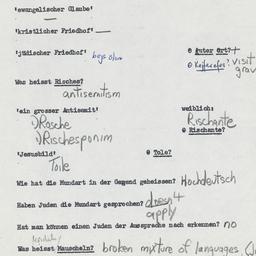 'ewangelischer Glaube'
'kristlicher Friedhof'
'jüdischer Friedhof' beys olem @ guter Ort?+
@ Kejwerofes? visit grav
Was heisst Risches?
antisemitism
'ein grosser Antisemit' weiblich:
1) Rosche Rischante
2) Rischesponim @ Rischante?
'Jesusbild' @ Tole?
Tole
Wie hat die Mundart in der Gegend geheissen? Hochdeutsch
Haben Juden die Mundart gesprochen? doesn't apply
Hat man können einen Juden der Aussprache nach erkennen? no
Was heisst Mauscheln? broken mixture of languages